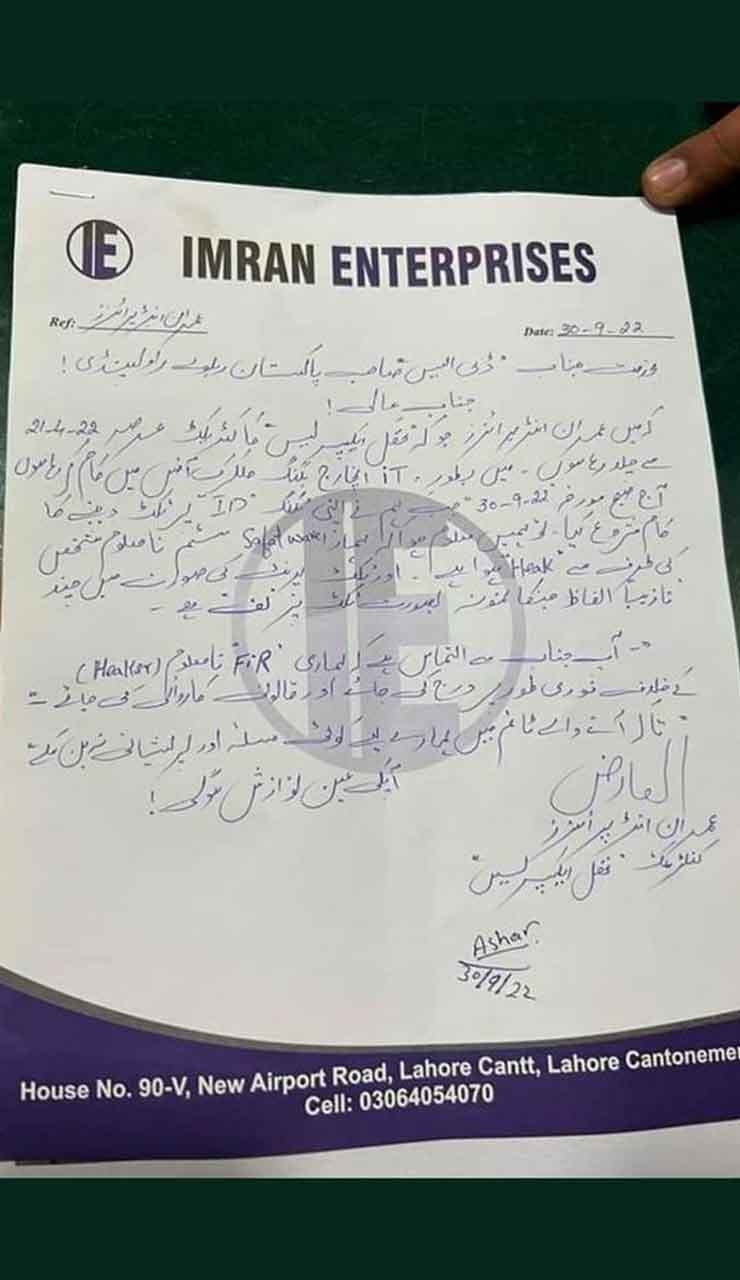 IE IMRAN ENTERPRISES
Ref: عمران انٹرپرائزز Date: 30-9-22
بخدمت جناب "ڈی ایس" صاحب پاکستان ریلوے راولپنڈی!
جناب عالی!
کہ میں عمران انٹرپرائزز جو کہ "تھل ایکسپریس" کا کنٹریکٹ عرصہ 21-4-22
سے چلا رہا ہوں۔ میں بطور iT انچارج بکنگ کلرک آفس میں کام کر رہا ہوں
آج صبح مورخہ "30-9-22" جب ہم نے اپنی بکنگ "ID" پر ٹکٹ دینے کا
کام شروع کیا۔ تو ہمیں معلوم ہوا کہ ہمارا Safatware سسٹم نامعلوم شخص
کی طرف سے "Heak" ہوا ہے۔ اور ٹکٹ پرنٹ کی صورت میں چند
نازیبا الفاظ جنکا نمونہ بصورت ٹکٹ پر لف ہے۔
آپ جناب سے التماس ہے کہ ہماری "FiR" نامعلوم (Heaker)
کے خلاف فوری طور پر درج کی جائے اور قانونی کاروائی کی جائے۔
تاکہ آنے والے ٹائم میں ہمارے لیے کوئی مسئلہ اور پریشانی نہ بن سکے
آپکی عین نوازش ہوگی!
العارض
عمران انٹرپرائزز
کنٹریکٹ "تھل ایکسپریس"
Ashar.
30/9/22
House No. 90-V, New Airport Road, Lahore Cantt, Lahore Cantoneme
Cell: 03064054070